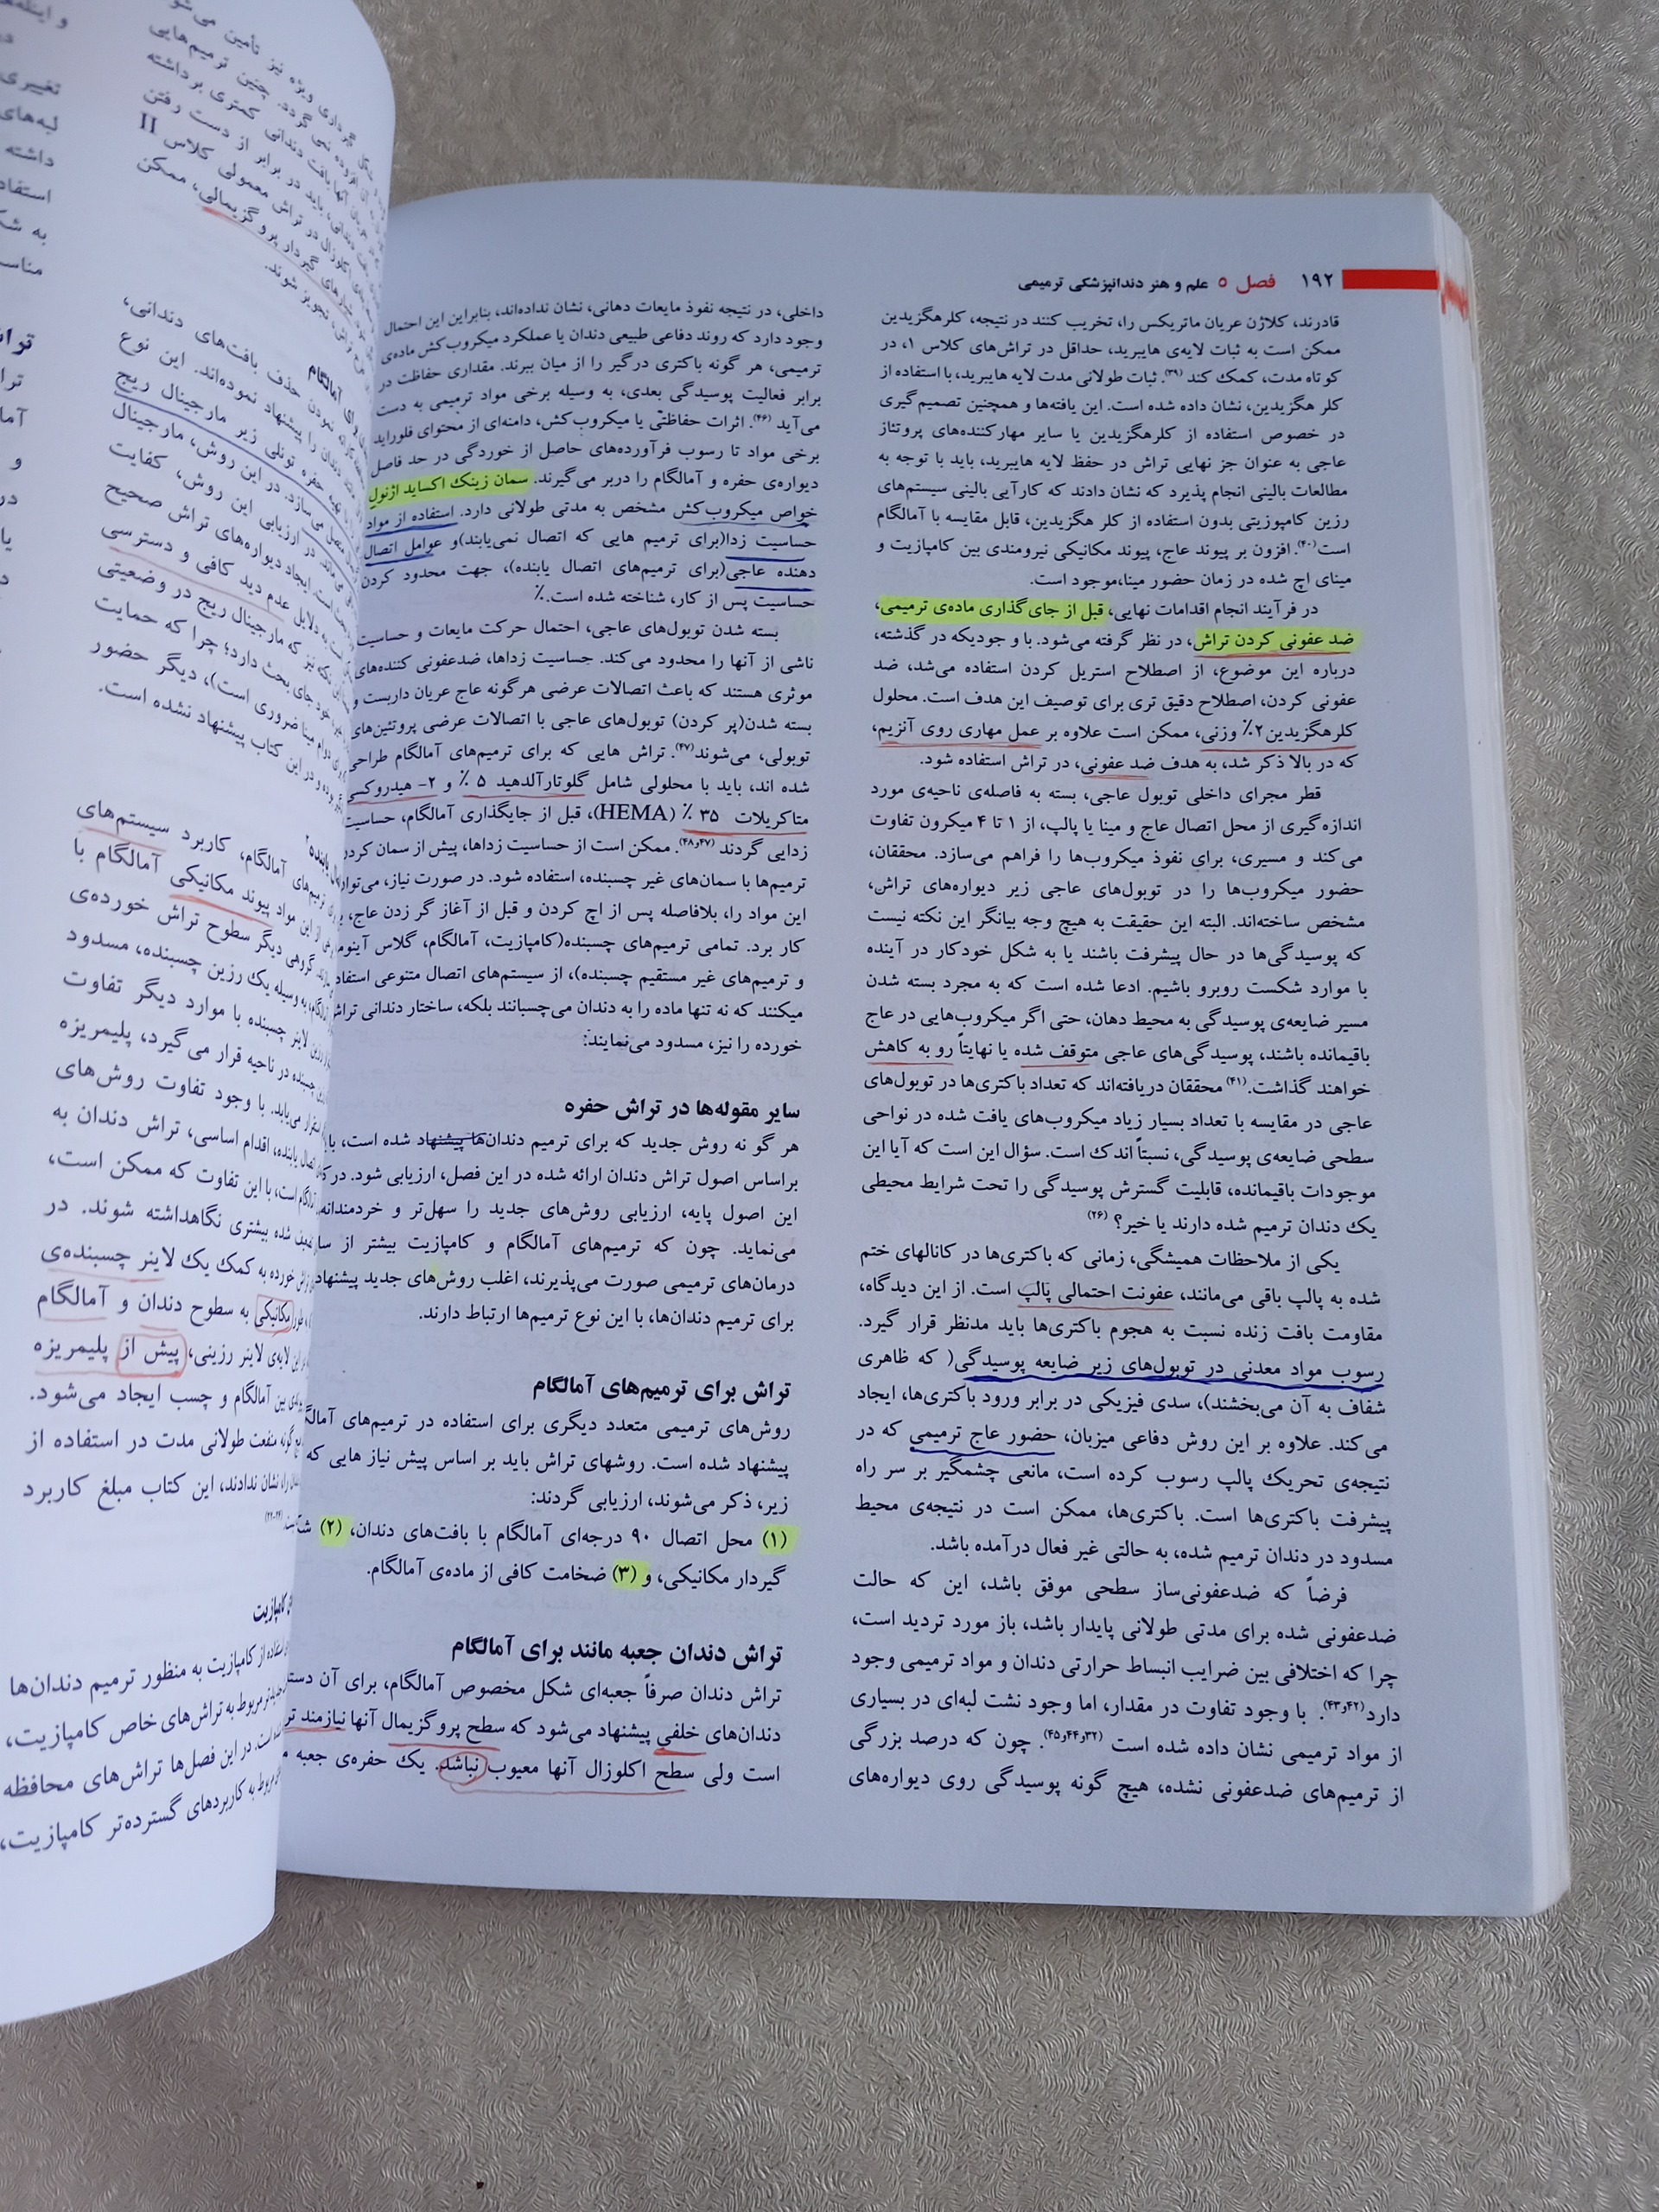 ۱۹۲ فصل ۵ علم و هنر دندانپزشکی ترمیمی
قادرند، کلاژن عریان ماتریکس را، تخریب کنند در نتیجه، کلرهگزیدین
ممکن است به ثبات لایه‌ی هایبرید، حداقل در تراش‌های کلاس ۱، در
کوتاه مدت، کمک کند (۳۹). ثبات طولانی مدت لایه هایبرید، با استفاده از
کلر هگزیدین، نشان داده شده است. این یافته‌ها و همچنین تصمیم گیری
در خصوص استفاده از کلرهگزیدین یا سایر مهارکننده‌های پروتئاز
عاجی به عنوان جز نهایی تراش در حفظ لایه هایبرید، باید با توجه به
مطالعات بالینی انجام پذیرد که نشان دادند که کارآیی بالینی سیستم‌های
رزین کامپوزیتی بدون استفاده از کلر هگزیدین، قابل مقایسه با آمالگام
است(۴۰). افزون بر پیوند عاج، پیوند مکانیکی نیرومندی بین کامپازیت و
مینای اچ شده در زمان حضور مینا،موجود است.
در فرآیند انجام اقدامات نهایی، قبل از جای گذاری ماده‌ی ترمیمی،
ضد عفونی کردن تراش، در نظر گرفته می‌شود. با و جودیکه در گذشته،
درباره این موضوع، از اصطلاح استریل کردن استفاده می‌شد، ضد
عفونی کردن، اصطلاح دقیق تری برای توصیف این هدف است. محلول
کلرهگزیدین۲٪ وزنی، ممکن است علاوه بر عمل مهاری روی آنزیم،
که در بالا ذکر شد، به هدف ضد عفونی، در تراش استفاده شود.
قطر مجرای داخلی توبول عاجی، بسته به فاصله‌ی ناحیه‌ی مورد
اندازه گیری از محل اتصال عاج و مینا یا پالپ، از ۱ تا ۴ میکرون تفاوت
می‌کند و مسیری، برای نفوذ میکروب‌ها را فراهم می‌سازد. محققان،
حضور میکروب‌ها را در توبول‌های عاجی زیر دیواره‌های تراش،
مشخص ساخته‌اند. البته این حقیقت به هیچ وجه بیانگر این نکته نیست
که پوسیدگی‌ها در حال پیشرفت باشند یا به شکل خودکار در آینده
با موارد شکست روبرو باشیم. ادعا شده است که به مجرد بسته شدن
مسیر ضایعه‌ی پوسیدگی به محیط دهان، حتی اگر میکروب‌هایی در عاج
باقیمانده باشند، پوسیدگی‌های عاجی متوقف شده یا نهایتاً رو به کاهش
خواهند گذاشت.(۴۱) محققان دریافته‌اند که تعداد باکتری‌ها در توبول‌های
عاجی در مقایسه با تعداد بسیار زیاد میکروب‌های یافت شده در نواحی
سطحی ضایعه‌ی پوسیدگی، نسبتاً اندک است. سؤال این است که آیا این
موجودات باقیمانده، قابلیت گسترش پوسیدگی را تحت شرایط محیطی
یک دندان ترمیم شده دارند یا خیر؟ (۲۶)
یکی از ملاحظات همیشگی، زمانی که باکتری‌ها در کانالهای ختم
شده به پالپ باقی می‌مانند، عفونت احتمالی پالپ است. از این دیدگاه،
مقاومت بافت زنده نسبت به هجوم باکتری‌ها باید مدنظر قرار گیرد.
رسوب مواد معدنی در توبول‌های زیر ضایعه پوسیدگی( که ظاهری
شفاف به آن می‌بخشند)، سدی فیزیکی در برابر ورود باکتری‌ها، ایجاد
می‌کند. علاوه بر این روش دفاعی میزبان، حضور عاج ترمیمی که در
نتیجه‌ی تحریک پالپ رسوب کرده است، مانعی چشمگیر بر سر راه
پیشرفت باکتری‌ها است. باکتری‌ها، ممکن است در نتیجه‌ی محیط
مسدود در دندان ترمیم شده، به حالتی غیر فعال درآمده باشد.
فرضاً که ضدعفونی‌ساز سطحی موفق باشد، این که حالت
ضدعفونی شده برای مدتی طولانی پایدار باشد، باز مورد تردید است،
چرا که اختلافی بین ضرایب انبساط حرارتی دندان و مواد ترمیمی وجود
دارد(۴۲و۴۳). با وجود تفاوت در مقدار، اما وجود نشت لبه‌ای در بسیاری
از مواد ترمیمی نشان داده شده است (۳۲و۴۴و۴۵). چون که درصد بزرگی
از ترمیم‌های ضدعفونی نشده، هیچ گونه پوسیدگی روی دیواره‌های
داخلی، در نتیجه نفوذ مایعات دهانی، نشان نداده‌اند، بنابراین این احتمال
وجود دارد که روند دفاعی طبیعی دندان یا عملکرد میکروب‌کش ماده‌ی
ترمیمی، هر گونه باکتری درگیر را از میان ببرند. مقداری حفاظت در
برابر فعالیت پوسیدگی بعدی، به وسیله برخی مواد ترمیمی به دست
می‌آید (۴۶). اثرات حفاظتّی یا میکروب‌کش، دامنه‌ای از محتوای فلوراید
برخی مواد تا رسوب فرآورده‌های حاصل از خوردگی در حد فاصل
دیواره‌ی حفره و آمالگام را دربر می‌گیرند. سمان زینک اکساید اژنول
خواص میکروب‌کش مشخص به مدتی طولانی دارد. استفاده از مواد
حساسیت زدا(برای ترمیم هایی که اتصال نمی‌یابند)و عوامل اتصال
دهنده عاجی(برای ترمیم‌های اتصال یابنده)، جهت محدود کردن
حساسیت پس از کار، شناخته شده است.٪
بسته شدن توبول‌های عاجی، احتمال حرکت مایعات و حساسیت
ناشی از آنها را محدود می‌کند. حساسیت زداها، ضدعفونی کننده‌های
موثری هستند که باعث اتصالات عرضی هرگونه عاج عریان داربست و
بسته شدن(پر کردن) توبول‌های عاجی با اتصالات عرضی پروتئین‌های
توبولی، می‌شوند(۴۷). تراش هایی که برای ترمیم‌های آمالگام طراحی
شده اند، باید با محلولی شامل گلوتارآلدهید ۵ ٪ و ۲- هیدروکسی
متاکریلات ۳۵ ٪ (HEMA)، قبل از جایگذاری آمالگام، حساسیت
زدایی گردند (۴۷و۴۸). ممکن است از حساسیت زداها، پیش از سمان کردن
ترمیم‌ها با سمان‌های غیر چسبنده، استفاده شود. در صورت نیاز، می‌توان
این مواد را، بلافاصله پس از اچ کردن و قبل از آغاز گر زدن عاج،
کار برد. تمامی ترمیم‌های چسبنده(کامپازیت، آمالگام، گلاس
و ترمیم‌های غیر مستقیم چسبنده)، از سیستم‌های اتصال متنوعی
میکنند که نه تنها ماده را به دندان می‌چسبانند بلکه، ساختار دندانی تراش
خورده را نیز، مسدود می‌نمایند:
سایر مقوله‌ها در تراش حفره
هر گو نه روش جدید که برای ترمیم دندان‌ها پیشنهاد شده است،
براساس اصول تراش دندان ارائه شده در این فصل، ارزیابی شود.
این اصول پایه، ارزیابی روش‌های جدید را سهل‌تر و خردمندانه
می‌نماید. چون که ترمیم‌های آمالگام و کامپازیت بیشتر از
درمان‌های ترمیمی صورت می‌پذیرند، اغلب روش‌های جدید پیشنهاد
برای ترمیم دندان‌ها، با این نوع ترمیم‌ها ارتباط دارند.
تراش برای ترمیم‌های آمالگام
روش‌های ترمیمی متعدد دیگری برای استفاده در ترمیم‌های
پیشنهاد شده است. روشهای تراش باید بر اساس پیش نیاز هایی که
زیر، ذکر می‌شوند، ارزیابی گردند:
(۱) محل اتصال ۹۰ درجه‌ای آمالگام با بافت‌های دندان، (۲)
گیردار مکانیکی، و (۳) ضخامت کافی از ماده‌ی آمالگام.
تراش دندان جعبه مانند برای آمالگام
تراش دندان صرفاً جعبه‌ای شکل مخصوص آمالگام، برای آن
دندان‌های خلفی پیشنهاد می‌شود که سطح پروگزیمال آنها نیازمند
است ولی سطح اکلوزال آنها معیوب نباشد. یک حفره‌ی جعبه
تأمین می‌شود
چنین ترمیم‌هایی
کمتری برداشته
باید در برابر از دست رفتن
در تراش معمولی کلاس II
گیردار پروگزیمالی، ممکن
تجویز شوند.
آمالگام
نمودن حذف بافت‌های دندانی،
را پیشنهاد نموده‌اند. این نوع
حفره تونلی زیر مارجینال ریج
می سازد. در این روش، مارجینال
در ارزیابی این روش، کفایت
ایجاد دیواره‌های تراش صحیح
دلایل عدم دید کافی و دسترسی
که مارجینال ریج در وضعیتی
جای بحث دارد؛ چرا که حمایت
مینا ضروری است)، دیگر حضور
و در این کتاب پیشنهاد نشده است.
ترمیم‌های آمالگام، کاربرد سیستم‌های
از این مواد پیوند مکانیکی آمالگام با
گروهی دیگر سطوح تراش خورده‌ی
به وسیله یک رزین چسبنده، مسدود
لاینر چسبنده با موارد دیگر تفاوت
چسبنده در ناحیه قرار می گیرد، پلیمریزه
می‌یابد. با وجود تفاوت روش‌های
یابنده، اقدام اساسی، تراش دندان به
است، با این تفاوت که ممکن است،
شده بیشتری نگاهداشته شوند. در
خورده به کمک یک لاینر چسبنده‌ی
مکانیکی به سطوح دندان و آمالگام
این لایه‌ی لاینر رزینی، پیش از پلیمریزه
بین آمالگام و چسب ایجاد می‌شود.
گونه منفعت طولانی مدت در استفاده از
را نشان ندادند، این کتاب مبلغ کاربرد
کامپازیت
استفاده از کامپازیت به منظور ترمیم دندان‌ها
مربوط به تراش‌های خاص کامپازیت،
در این فصل‌ها تراش‌های محافظه
مربوط به کاربردهای گسترده‌تر کامپازیت،
تغییری
لبه‌های
داشته
به